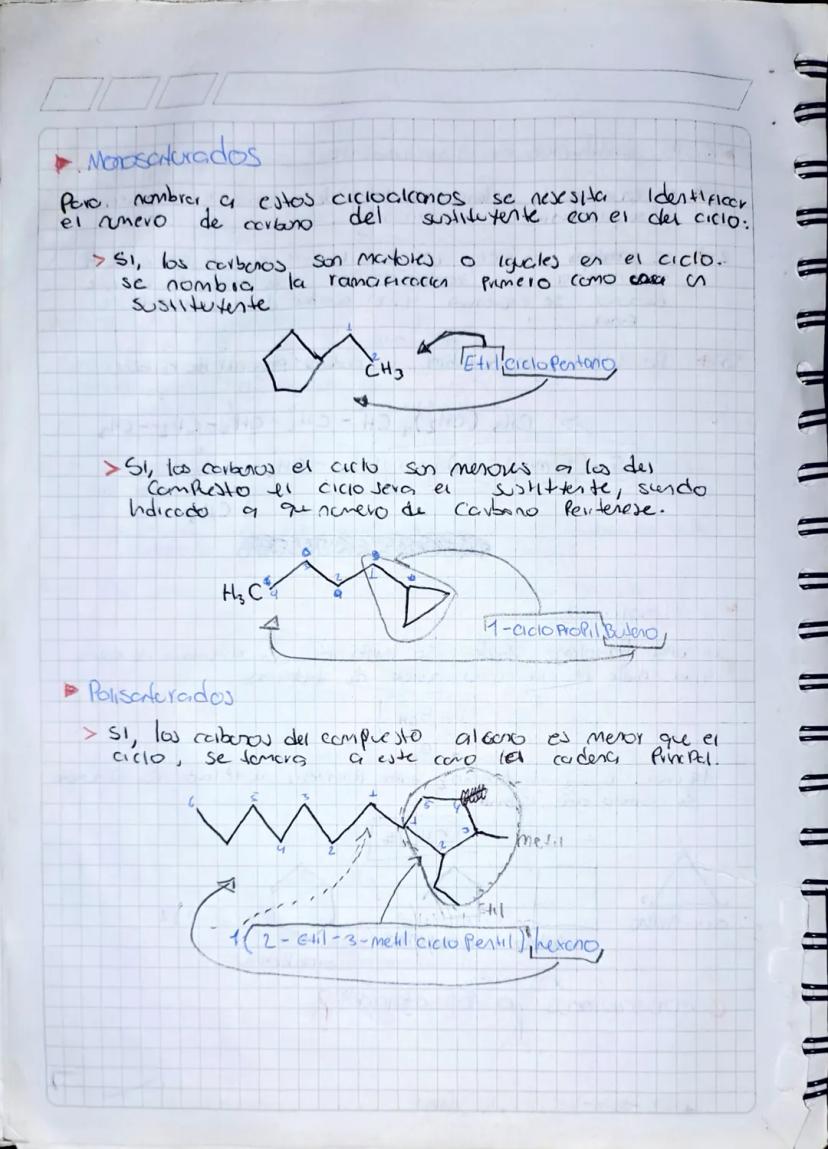 Monosaturados
Para nombrar a estos cicloalcanos se nesesita Identificar
el numero de carbono del sustituyente con el del ciclo:
> Si, los carbonos son mayores o iguales en el ciclo.
se nombra la ramificacion primero como un
sustituyente
1
2
CH3
Etil ciclo Pentano
> Si, los carbonos el ciclo son menores a los del
Compuesto el ciclo sera el sustituyente, siendo
Indicado a que numero de Carbono Pertenese.
H3C
4
2
1
1-ciclo Propil Butano
Polisaturados
> Si, los carbonos del compuesto alcano es menor que el
ciclo, se tomara a este como la cadena Principal.
6 5 3 1 5 4
4 2 1 2 3
metil
Etil
1(2-Etil-3-metil ciclo Pentil) hexano